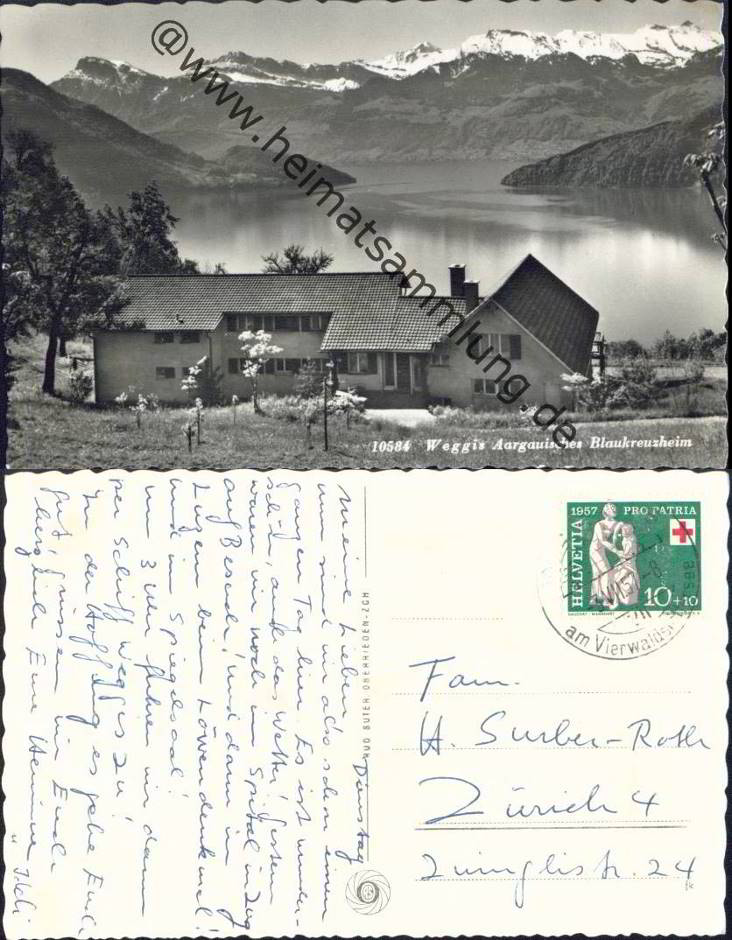 @www.heimatsammlung.de
10584 Weggis Aargauisches Blaukreuzheim
Dienstag
Meine Lieben
nun sind wir also schon einen
ganzen Tag hier. Es ist wunder-
schön, auch das Wetter! Gestern
waren wir noch im Spital in Zug
auf Besuch, und dann in
Luzern beim Löwendenkmal!
und im Spiegelsaal!
um 3 Uhr fuhren wir dann
per Schiff Weggis zu!
In der Hoffnung es gehe Euch
gut, grüssen wir Euch
herzlich Eure Hermine
u.
RUD. SUTER, OBERRIEDEN-ZCH
1957 PRO PATRIA
HELVETIA
10+10
am Vierwaldst
Fam.
H. Surber-Roth
Zürich 4
Zwinglistr. 24